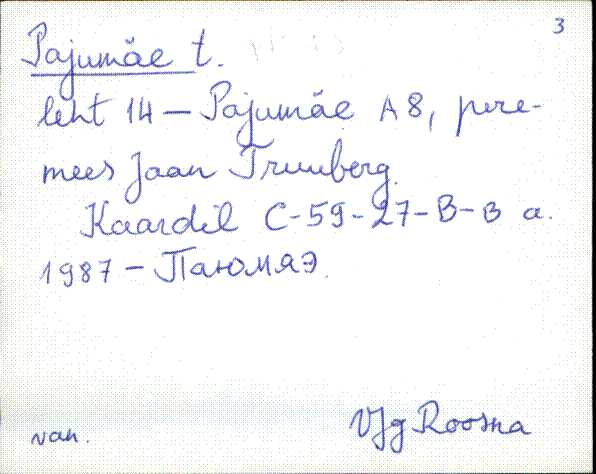 3
Pajumäe t.
leht 14 – Pajumäe A8, pere-
mees Jaan
Kaardil C-59-27-B-в a.
1987 – Паюмяэ.
van.
VJg Roosna